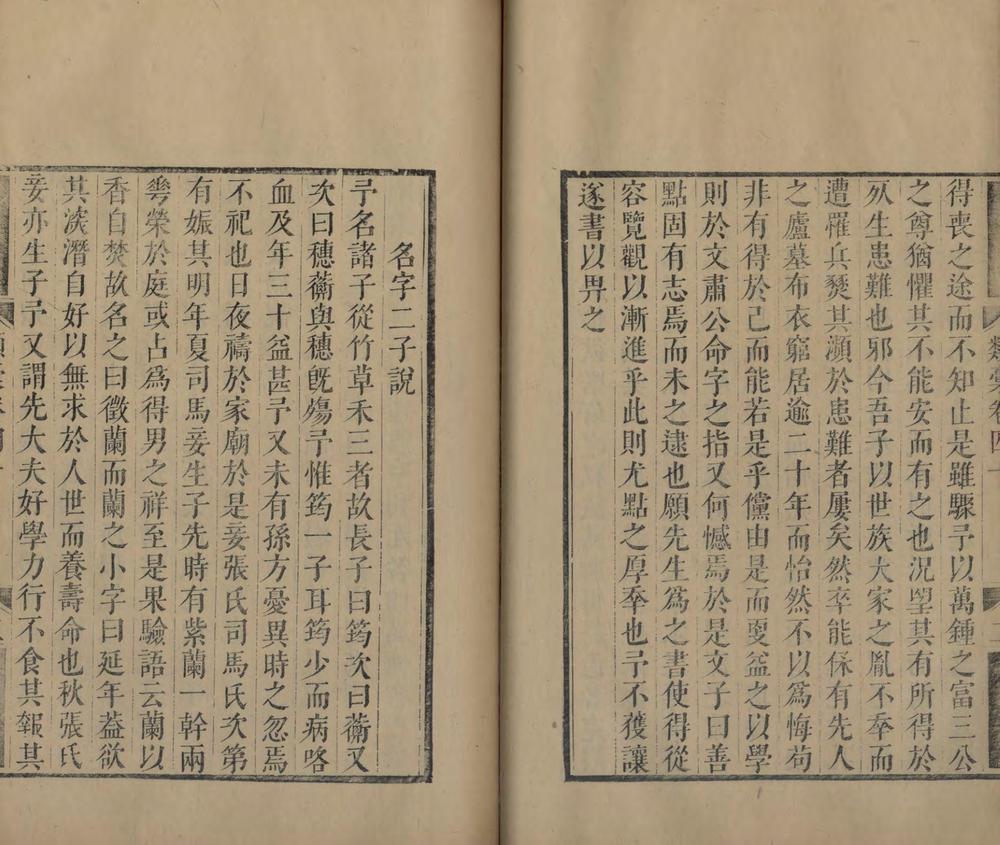 得喪之途而不知止是雖驟予以萬鍾之富三公
之尊猶懼其不能安而有之也況朢其有所得於
夙生患難也邪今吾子以世族大家之胤不幸而
遭罹兵燹其瀕於患難者屢矣然卒能保有先人
之廬墓布衣窮居逾二十年而怡然不以為悔苟
非有得於己而能若是乎儻由是而更益之以學
則於文肅公命字之指又何憾焉於是文子曰善
點固有志焉而未之逮也願先生為之書使得從
容覽觀以漸進乎此則尤點之厚幸也予不獲讓
遂書以畀之
名字二子說
予名諸子從竹草禾三者故長子曰筠次曰蘅又
次曰穗蘅與穗旣殤予惟筠一子耳筠少而病咯
血及年三十益甚予又未有孫方憂異時之忽焉
不祀也日夜禱於家廟於是妾張氏司馬氏次第
有娠其明年夏司馬妾生子先時有紫蘭一幹兩
𠌶榮於庭或占為得男之祥至是果驗語云蘭以
香自焚故名之曰徵蘭而蘭之小字曰延年葢欲
其淡潛自好以無求於人世而養壽命也秋張氏
妾亦生子予又謂先大夫好學力行不食其報其
類稾卷四十